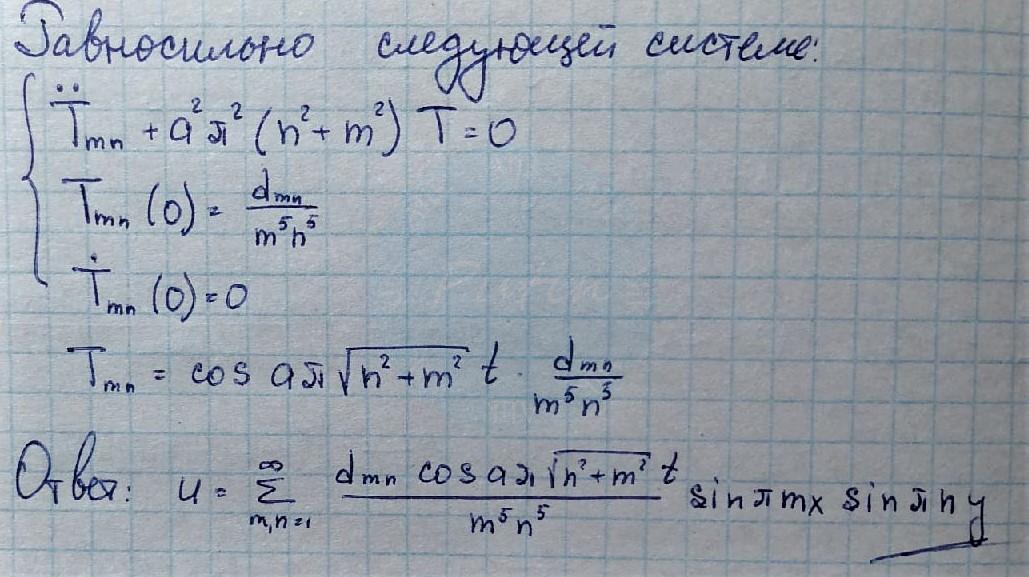 Равносильно следующей системе:
T̈ₘₙ + a²π²(n² + m²) T = 0
Tₘₙ(0) = dₘₙ / m⁵n⁵
Ṫₘₙ(0) = 0
Tₘₙ = cos aπ√(n² + m²) t · dₘₙ / m⁵n⁵
Ответ: u = ∑_{m,n=1}^{∞} dₘₙ cos aπ√(n² + m²) t / m⁵n⁵ sin πmx sin πny